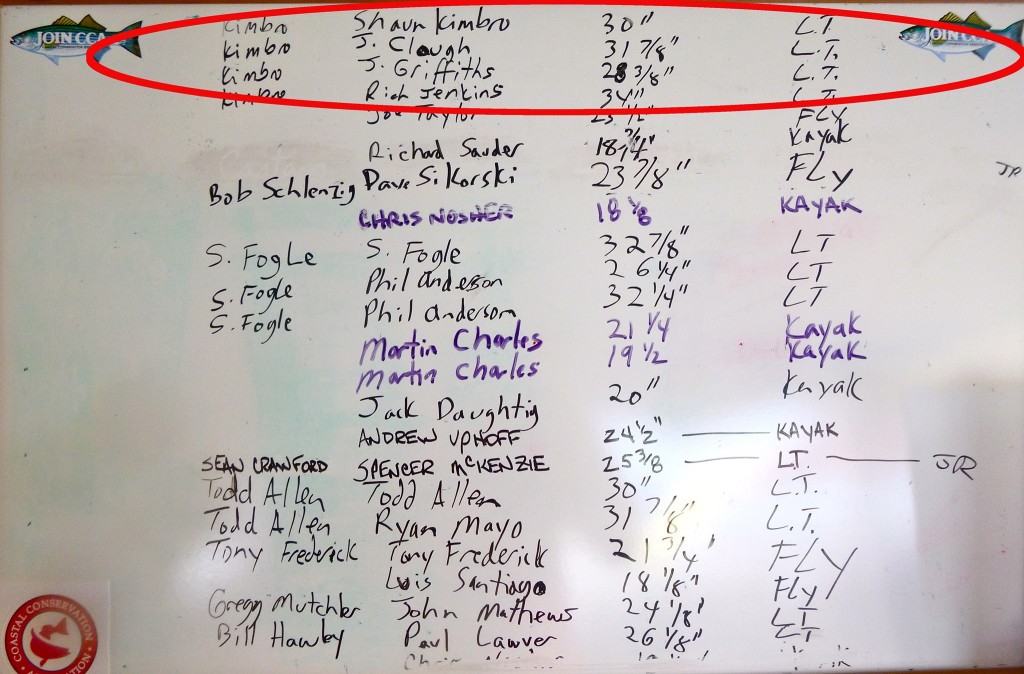 JOIN CCA
JOIN CCA
Kimbro Shaun Kimbro 30" L.T.
Kimbro J. Clough 31 7/8" L.T.
Kimbro J. Griffiths 28 3/8" L.T.
Kimbro Rich Jenkins 34" L.T.
Joe Taylor 23 1/2" FLY
Richard Sauder 18 3/4" Kayak
Bob Schlenzig Dave Sikorski 23 7/8" FLy JR
CHRIS NOSHER 18 1/8 KAYAK
S. FogLe S. Fogle 32 7/8" LT
S. Fogle Phil Anderson 26 1/4" LT
S. Fogle Phil Anderson 32 1/4" LT
Martin Charles 21 1/4 Kayak
Martin Charles 19 1/2 Kayak
Jack Daughtig 20" Kayak
ANDREW UPHOFF 24 1/2" — KAYAK
SEAN CRAWFORD SPENCER McKENZIE 25 3/8 — LT. — JR
Todd Allen Todd Allen 30" L.T.
Todd Allen Ryan Mayo 31 7/8" L.T.
Tony Frederick Tony Frederick 21 3/4" FLY
Luis Santiago 18 1/8" Fly
Gregg Mutchler John Mathews 24 1/8" LT
Bill Hawley Paul Lawver 26 1/8" LT
COASTAL CONSERVATION